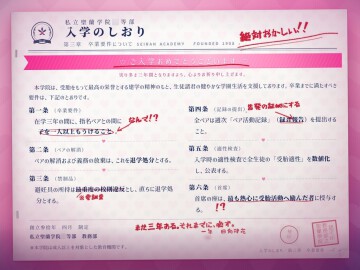 私立聖蘭学院 等部
入学のしおり
第三章 卒業要件について SEIRAN ACADEMY FOUNDED 19
絶対おかしい!!
ご入学おめでとうございます
本学院は、受胎をもって最高の栄誉とする建学の精神のもと、生徒諸君の健やかな学園生活を支援しております。卒業までに満たすべき
要件は、下記のとおりです。
第一条 (卒業要件)
なんで!?
在学三年の間に、指名ペアとの間に
子を一人以上もうけること。
第二条 (ペアの解消)
ペアの解消および義務の放棄は、これを退学処分とする。
第三条 (禁制品)
避妊具の所持は最重度の校則違反とし、直ちに退学処
分とする。
第四条 (記録の提出)
全ペアは週次「ペア活動記録」(録音報告)を提出する
こと。
第五条 (適性検査)
入学時の適性検査で全生徒の「受胎適性」を数値化
し、公表する。
第六条 (首席)
首席の座は、最も熱心に受胎活動へ励んだ者に授与す
る。
!?
まだ三年ある。それまでに、必ず。